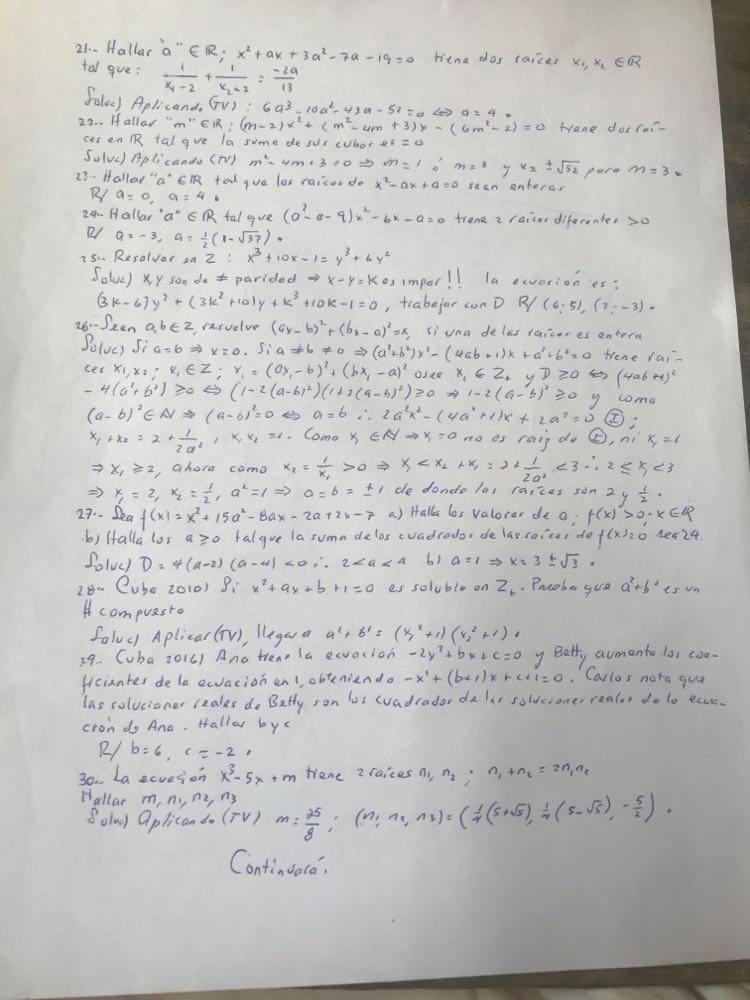 21.- Hallar "a" ∈ R; x² + ax + 3a² - 7a - 19 = 0 tiene dos raíces x₁, x₂ ∈ R
tal que: 1/(x₁-2) + 1/(x₂-2) = -2a/13
Soluc) Aplicando (TV): 6a³ - 10a² - 43a - 52 = 0 ⇔ a = 4.
22.- Hallar "m" ∈ R; (m-2)x² + (m² - 4m + 3)x - (6m² - 2) = 0 tiene dos raí-
ces en R tal que la suma de sus cubos es = 0
Soluc) Aplicando (TV) m² - 4m + 3 = 0 ⇒ m = 1 ó m = 3 y x = ±√52 para m = 3.
23.- Hallar "a" ∈ R tal que las raíces de x² - ax + a = 0 sean enteras
R/ a = 0, a = 4.
24.- Hallar "a" ∈ R tal que (a² - a - 9)x² - 6x - a = 0 tiene 2 raíces diferentes > 0
R/ a = -3, a = ½(1 - √37).
25.- Resolver en Z: x³ + 10x - 1 = y³ + 6y²
Soluc) x, y son de ≠ paridad ⇒ x - y = K es impar!! la ecuación es:
(3K - 6)y² + (3K² + 10)y + K³ + 10K - 1 = 0, trabajar con D R/ (6; 5), (2; -3).
26.- Sean a, b ∈ Z, resuelve (ax - b)² + (bx - a)² = x, si una de las raíces es entera
Soluc) Si a = b ⇒ x = 0. Si a ≠ b ≠ 0 ⇒ (a² + b²)x² - (4ab + 1)x + a² + b² = 0 tiene raí-
ces x₁, x₂; x₁ ∈ Z; x₁ = (ax₁ - b)² + (bx₁ - a)² osea x₁ ∈ Z₊ y D ≥ 0 ⇔ (4ab + 1)²
- 4(a² + b²)² ≥ 0 ⇔ (1 - 2(a-b)²)(1 + 2(a-b)²) ≥ 0 ⇒ 1 - 2(a-b)² ≥ 0 y como
(a-b)² ∈ N ⇒ (a-b)² = 0 ⇔ a = b ∴ 2a²x² - (4a² + 1)x + 2a² = 0 (I);
x₁ + x₂ = 2 + 1/2a², x₁x₂ = 1. Como x₁ ∈ N ⇒ x₁ = 0 no es raíz de (I), ni x₁ = 1
⇒ x₁ ≥ 2, ahora como x₂ = 1/x₁ > 0 ⇒ x₁ < x₂ + x₁ = 2 + 1/2a² < 3 ∴ 2 ≤ x₁ < 3
⇒ x₁ = 2, x₂ = ½, a² = 1 ⇒ a = b = ±1 de donde las raíces son 2 y ½.
27.- Sea f(x) = x² + 15a² - 8ax - 2a + 2x - 7 a) Halla los valores de a; f(x) > 0; x ∈ R
b) Halla los a ≥ 0 tal que la suma de los cuadrados de las raíces de f(x) = 0 sea 24.
Soluc) D = 4(a-2)(a-4) < 0 ∴ 2 < a < 4 b) a = 1 ⇒ x = 3 ± √3.
28.- Cuba 2010) Si x² + ax + b + 1 = 0 es soluble en Z₊. Prueba que a² + b² es un
# compuesto
Soluc) Aplicar (TV), llegar a a² + b² = (x₁² + 1)(x₂² + 1).
29.- Cuba 2016) Ana tiene la ecuación -2x² + bx + c = 0 y Betty aumenta los coe-
ficientes de la ecuación en 1, obteniendo -x² + (b+1)x + c + 1 = 0. Carlos nota que
las soluciones reales de Betty son los cuadrados de las soluciones reales de la ecua-
ción de Ana. Hallar b y c
R/ b = 6, c = -2.
30.- La ecuación x³ - 5x + m tiene 2 raíces n₁, n₂; n₁ + n₂ = 2n₁n₂
Hallar m, n₁, n₂, n₃
Soluc) Aplicando (TV) m = 25/8; (n₁, n₂, n₃) = (¼(5 + √5), ¼(5 - √5), -5/2).
Continuará.